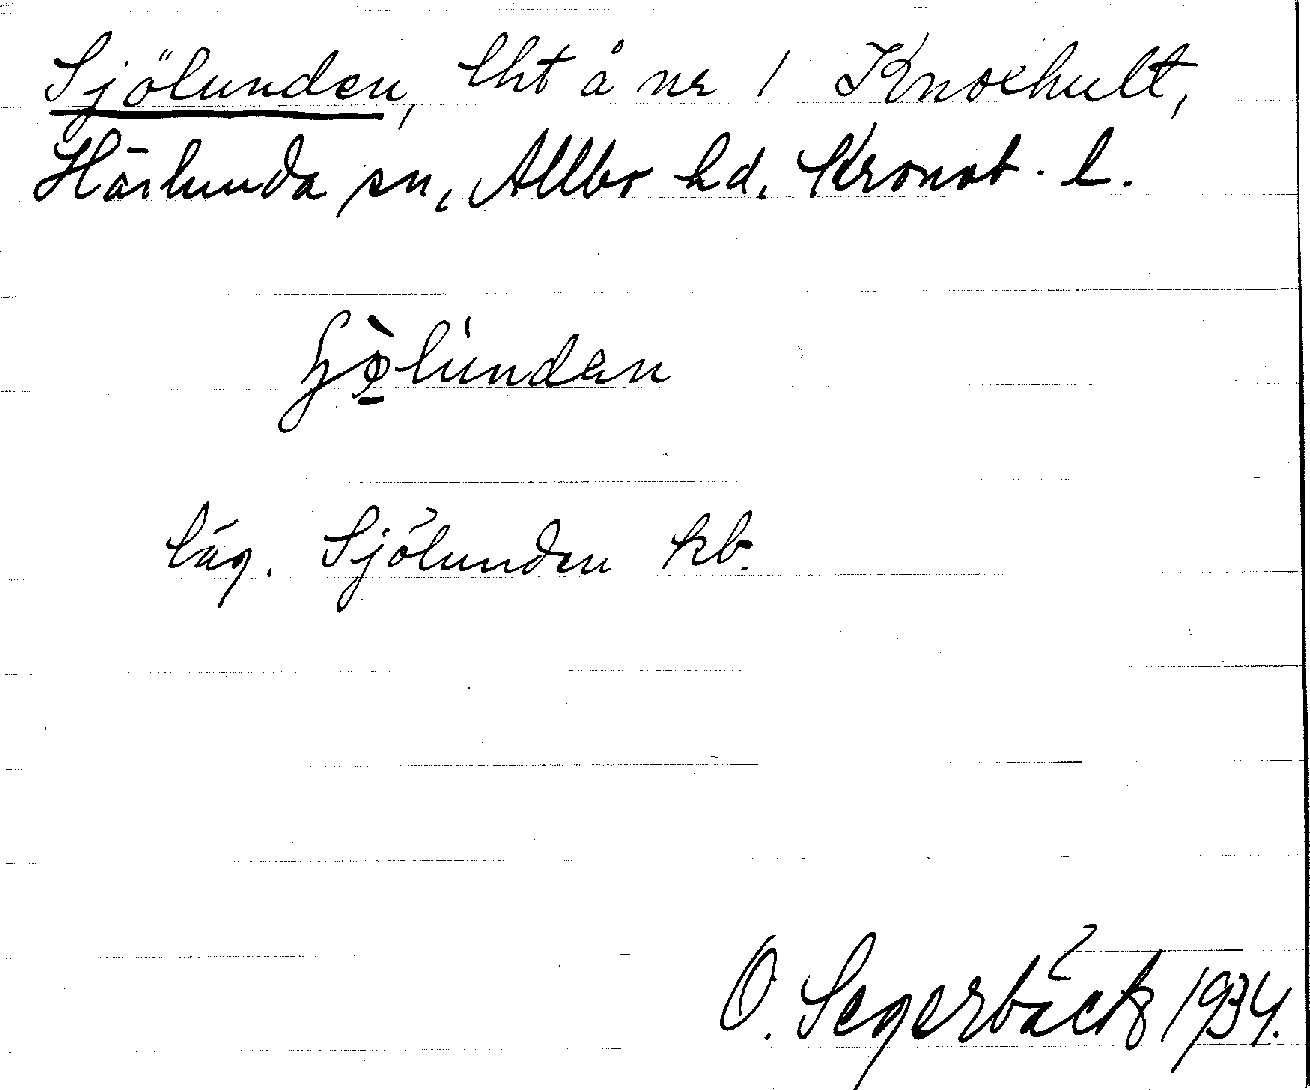 Sjölunden, lht å nr 1 Knoxhult,
Härlunda sn, Allbo hd. Kronob. l.
lündan
läg. Sjölunden kb.
O. Segerbäck 1934.